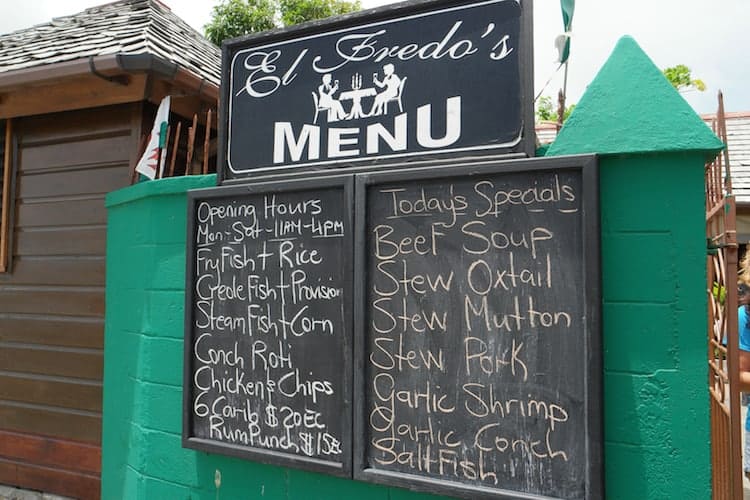 El Fredo's
MENU
Opening Hours
Mon-Sat-11AM-4PM
Fry Fish + Rice
Creole Fish + Provision
Steam Fish + Corn
Conch Roti
Chicken & Chips
6 Carib $20EC
Rum Punch $15EC
Today's Specials
Beef Soup
Stew Oxtail
Stew Mutton
Stew Pork
Garlic Shrimp
Garlic Conch
Saltfish